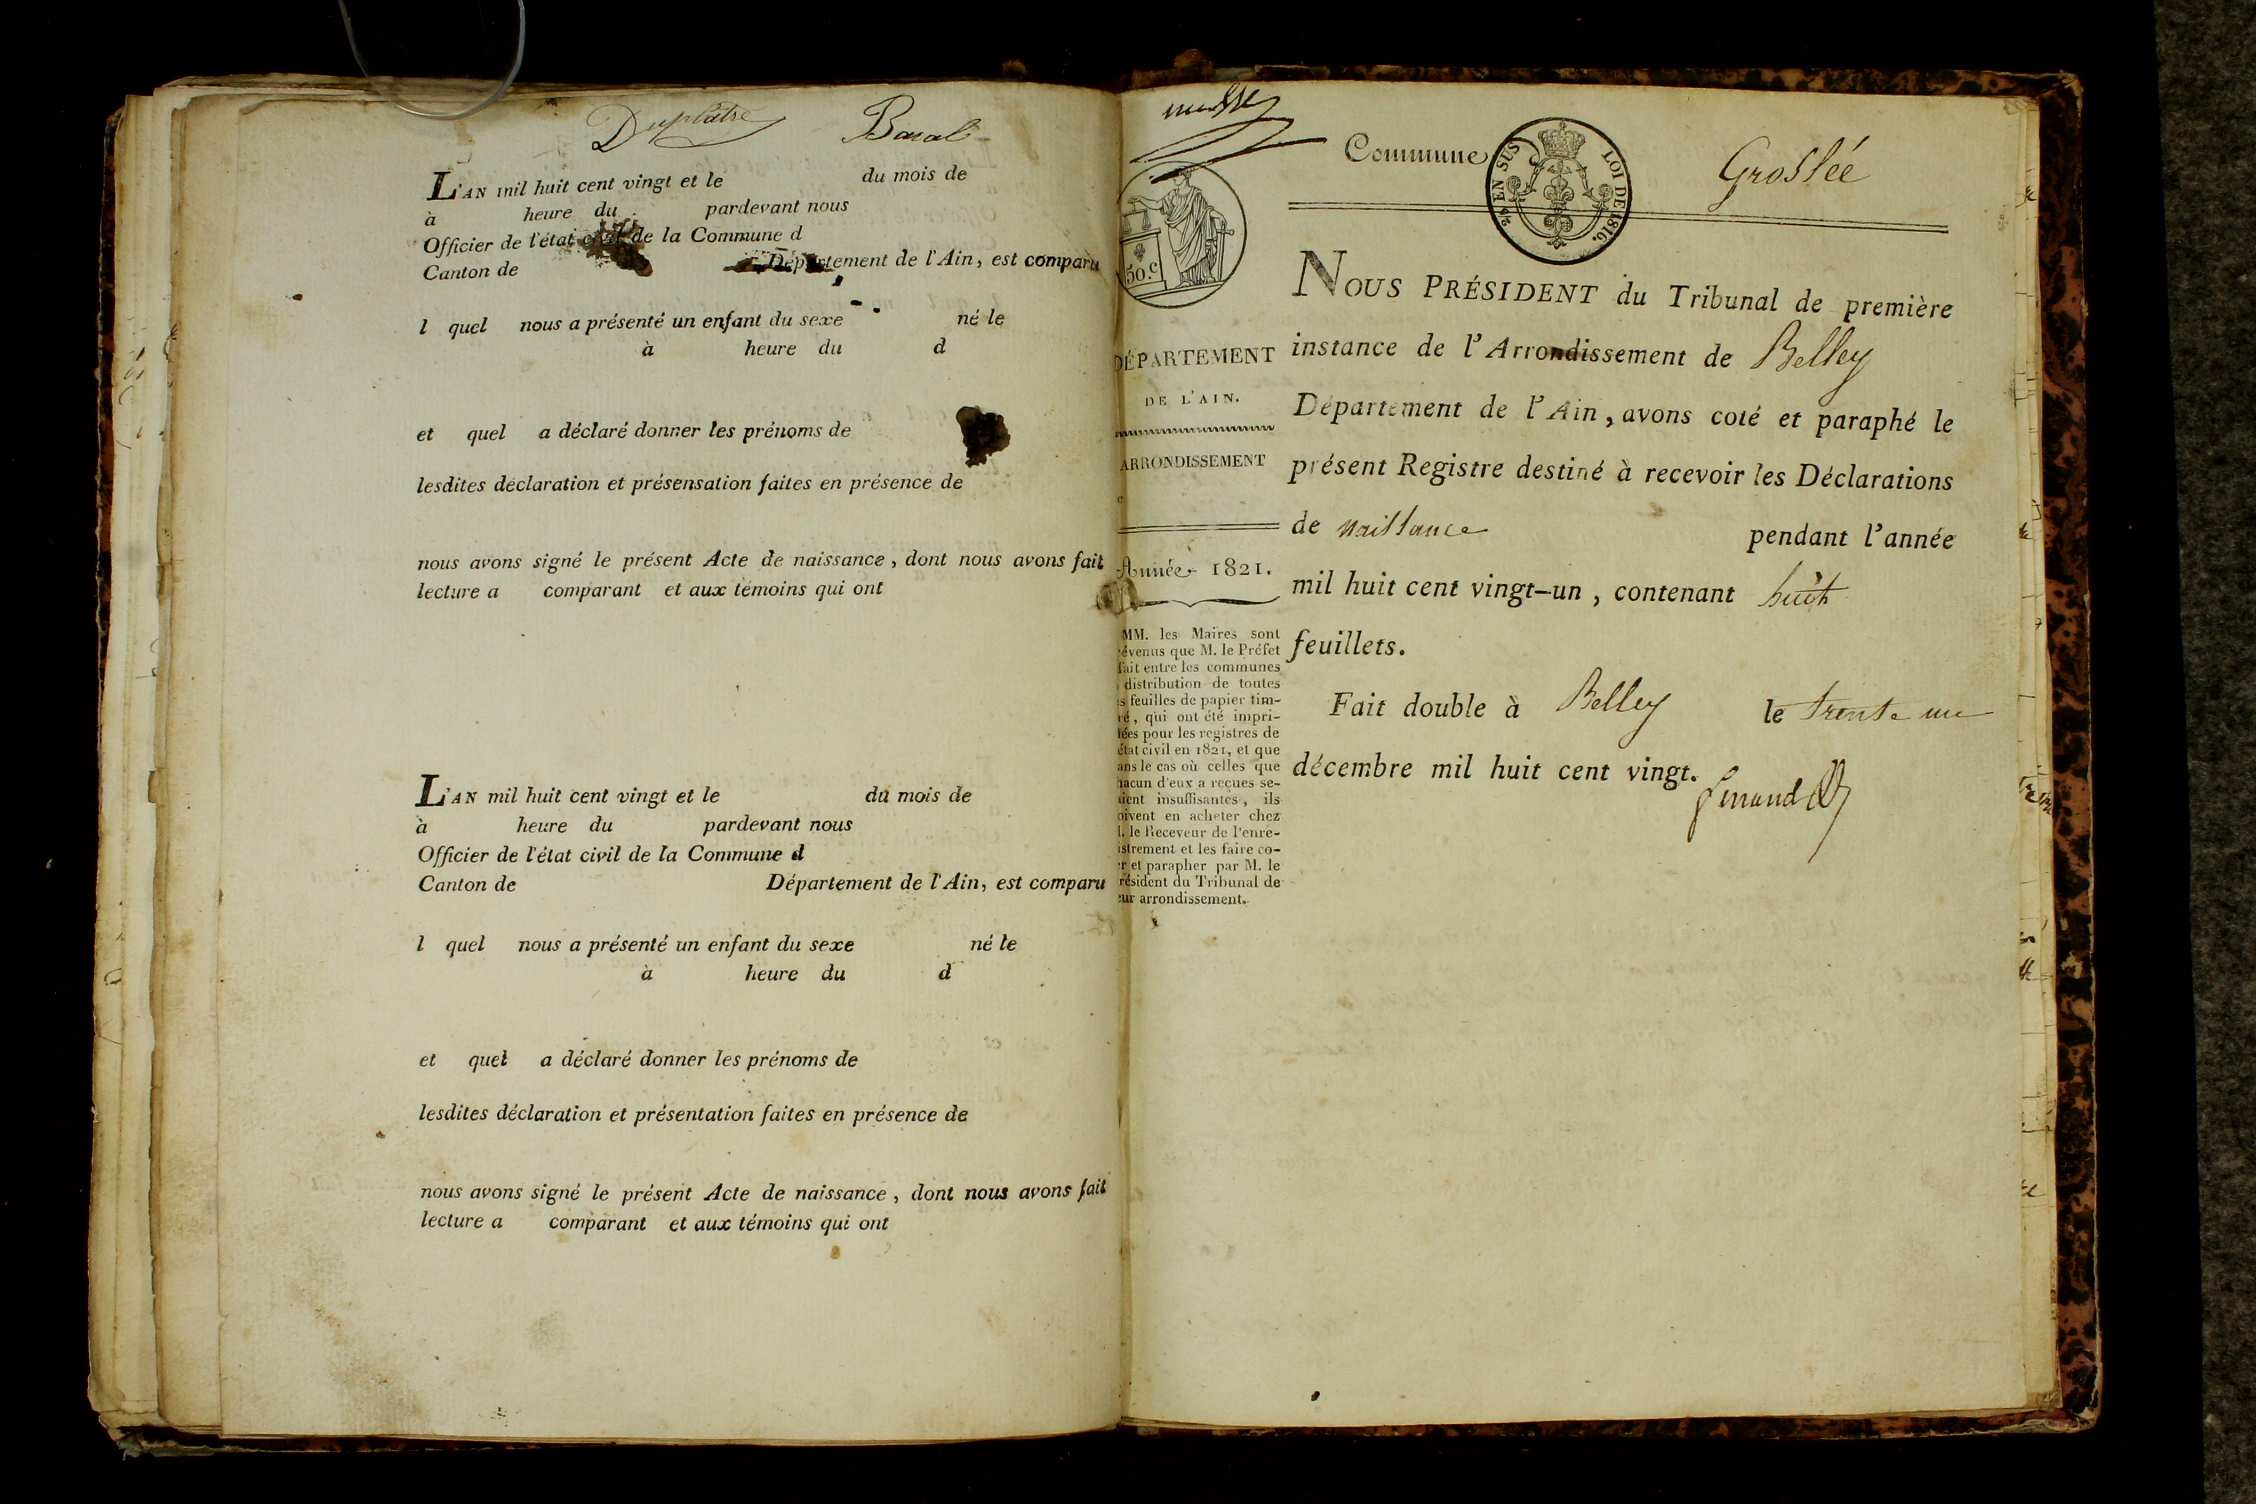 Duplatre Baral
L'AN mil huit cent vingt et le du mois de
à heure du pardevant nous
Officier de l'état civil de la Commune d
Canton de Département de l'Ain, est comparu
l quel nous a présenté un enfant du sexe né le
à heure du d
et quel a déclaré donner les prénoms de
lesdites déclaration et présensation faites en présence de
nous avons signé le présent Acte de naissance, dont nous avons fait
lecture a comparant et aux témoins qui ont
L'AN mil huit cent vingt et le du mois de
à heure du pardevant nous
Officier de l'état civil de la Commune d
Canton de Département de l'Ain, est comparu
l quel nous a présenté un enfant du sexe né le
à heure du d
et quel a déclaré donner les prénoms de
lesdites déclaration et présentation faites en présence de
nous avons signé le présent Acte de naissance, dont nous avons fait
lecture a comparant et aux témoins qui ont
50.c
DÉPARTEMENT
DE L'AIN.
ARRONDISSEMENT
Année 1821.
MM. les Maires sont
évenus que M. le Préfet
fait entre les communes
distribution de toutes
s feuilles de papier tim-
ré, qui ont été impri-
ées pour les registres de
état civil en 1821, et que
ans le cas où celles que
hacun d'eux a reçues se-
aient insuffisantes, ils
oivent en acheter chez
l. le Receveur de l'enre-
istrement et les faire co-
er et parapher par M. le
résident du Tribunal de
eur arrondissement.
Commune Grosléé
EN SUS LOI DE 1816.
NOUS PRÉSIDENT du Tribunal de première
instance de l'Arrondissement de Belley
Département de l'Ain, avons coté et paraphé le
présent Registre destiné à recevoir les Déclarations
de naissance pendant l'année
mil huit cent vingt-un, contenant huit
feuillets.
Fait double à Belley le trente un
décembre mil huit cent vingt.